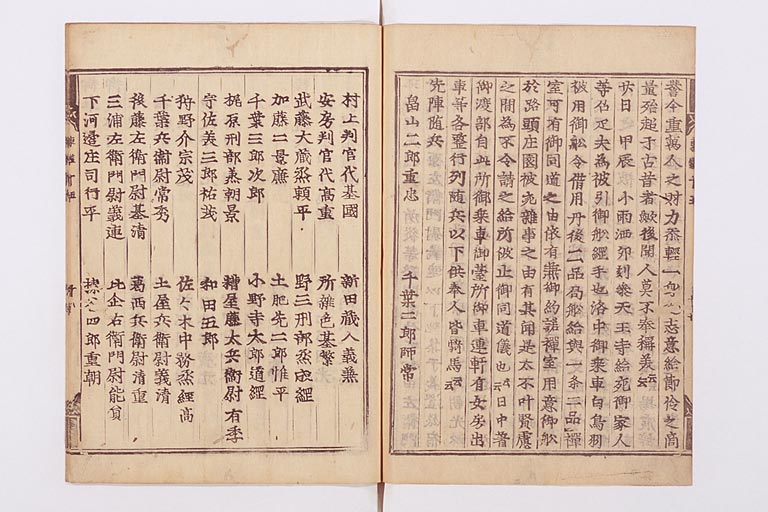 今重萬人之財力忝輕一身之志意給節之高
最殆起于古昔者歟後聞人莫不奉稱美云云
廿日 甲辰 小雨洒卯剋參天王寺給宛御家人
等疋夫為被引御舩手也洛中御乘車自鳥羽
被用御舩令借用丹後二品局舩給與一条二品禪
室可有御同道之由依有兼御約諾禪室用意御舩
於路頭庄園被充雜事之由有其聞是太不叶賢慮
之間為不令請之給所被止御同道儀也云云日中着
御渡部自此所御乘車御臺所御車連軒有女房出
車等各整行列隨兵以下供奉人皆騎馬云云
先陣隨兵
畠山二郎重忠 千葉二郎師常
村上判官代基國 新田藏人義兼
安房判官代高重 所雜色基繁
武藤大藏丞頼平 野三刑部丞成經
加藤二景廉 土肥先二郎惟平
千葉三郎次郎 小野寺太郎道經
梶原刑部兼朝景 糟屋藤太兵衛尉有季
宇佐美三郎祐茂 和田五郎
狩野介宗茂 佐々木中務丞經高
千葉兵衛尉常秀 土屋兵衛尉義清
後藤左衛門尉基清 葛西兵衛尉清重
三浦左衛門尉義連 比企右衛門尉能員
下河邊庄司行平 榛谷四郎重朝